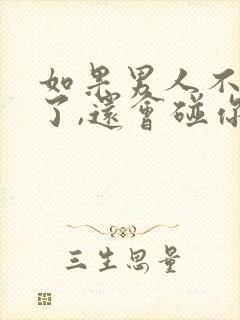 如果男人不
了,还会碰你
三生思量